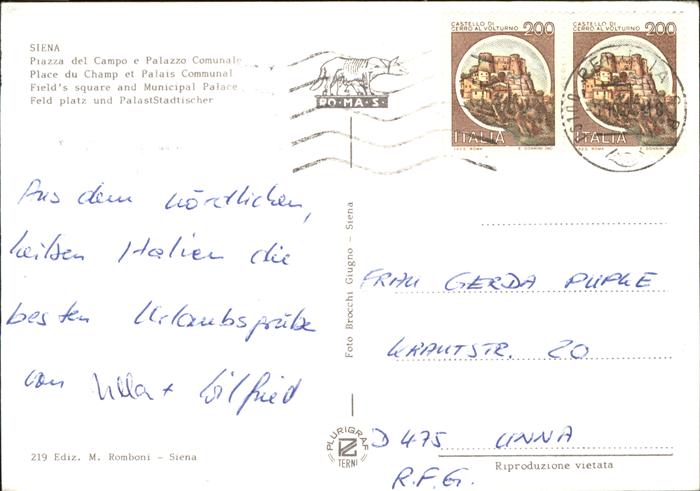 SIENA
Piazza del Campo e Palazzo Comunale
Place du Champ et Palais Communal
Field's square and Municipal Palace
Feld platz und PalastStadtischer
RO·MA·S·
CASTELLO DI CERRO AL VOLTURNO 200
ITALIA
I.P.Z.S. ROMA E. DONNINI INC.
CASTELLO DI CERRO AL VOLTURNO 200
ITALIA
I.P.Z.S. ROMA E. DONNINI INC.
Aus dem nördlichen,
heißen Italien die
besten Urlaubsgrüße
von Ulla + Wilfried
219 Ediz. M. Romboni - Siena
Foto Brocchi Giugno - Siena
PLURIGRAF
TERNI
FRAU GERDA PUPKE
KRAUTSTR. 20
D 475 UNNA
R.F.G.
Riproduzione vietata